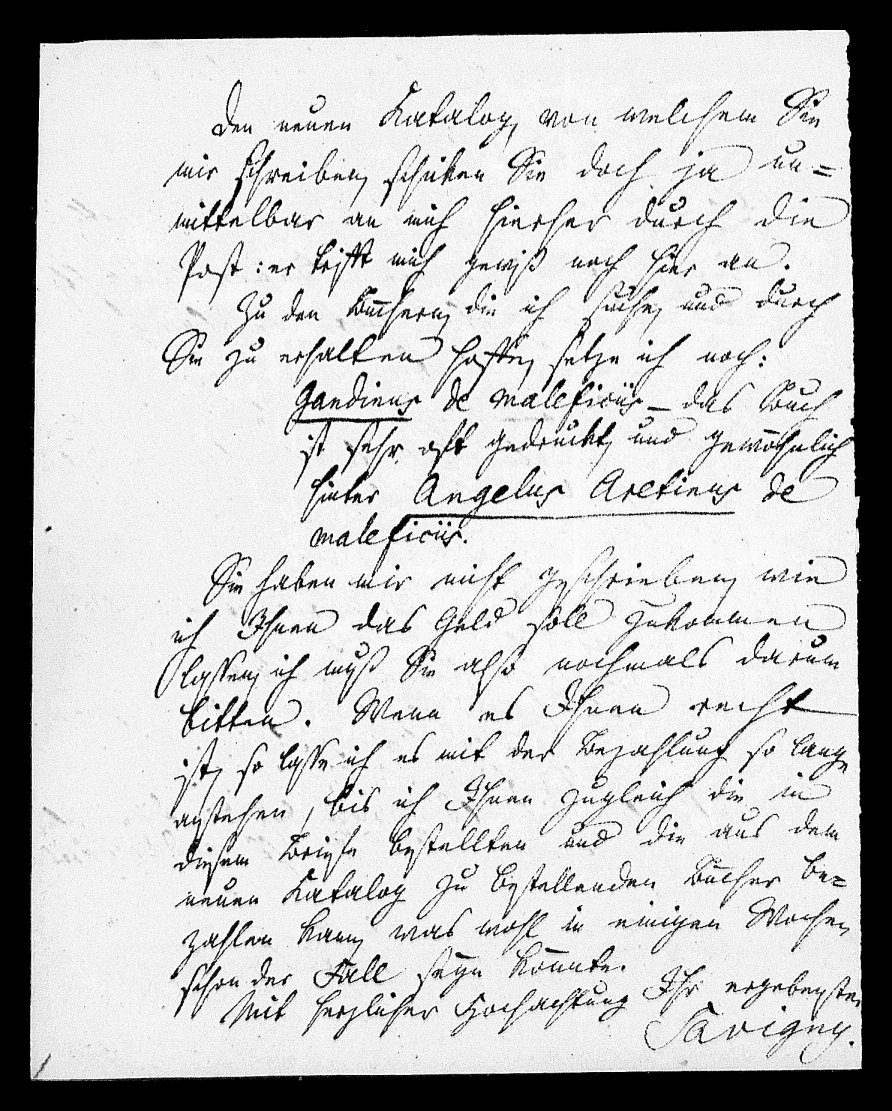 Den neuen Katalog, von welchem Sie
mir schreiben, schicken Sie doch ja un=
mittelbar an mich hierher durch die
Post: er trifft mich gewiß noch hier an.
Zu den Büchern, die ich suche, und durch
Sie zu erhalten hoffe, setze ich noch:
Gandinus de maleficiis – das Buch
ist sehr oft gedruckt, und gewöhnlich
hinter Angelus Aretinus de
maleficiis.
Sie haben mir nicht geschrieben, wie
ich Ihnen das Geld soll zukommen
lassen, ich muß Sie also nochmals darum
bitten. Wenn es Ihnen recht
ist, so lasse ich es mit der Bezahlung so lange
anstehen, bis ich Ihnen zugleich die in
diesem Briefe bestellten und die aus dem
neuen Katalog zu bestellenden Bücher be=
zahlen kann, was wohl in einigen Wochen
schon der Fall seyn könnte.
Mit herzlicher Hochachtung Ihr ergebenster
Savigny.